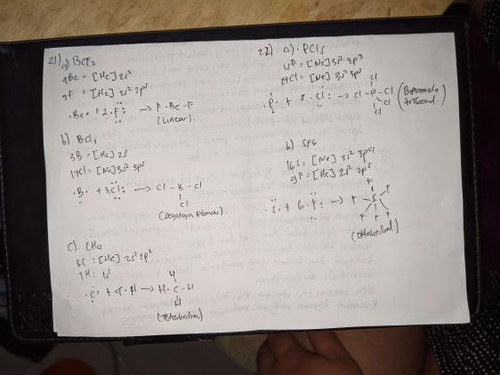 21) a) BeF₂
4Be = [He] 2s²
9F = [He] 2s² 2p⁵
·Be· + 2·F: → F-Be-F
(Linear)
b). BCl₃
5B = [He] 2s²
17Cl = [Ne] 3s² 3p⁵
·B· + 3·Cl: → Cl - B - Cl
Cl
c). CH₄
6C = [He] 2s² 2p²
1H: 1s¹
·C· + 4·H → H-C-H
H
H
(Tetrahedral)
22) a). PCl₅
15P = [Ne] 3s² 3p³
17Cl = [Ne] 3s² 3p⁵
·P· + 5·Cl: → Cl-P-Cl
Cl
Cl
Cl
b) SF₆
16S = [Ne] 3s² 3p⁴
9F = [He] 2s² 2p⁵
·S· + 6·F: → F S F
F F F
(Octahedral)